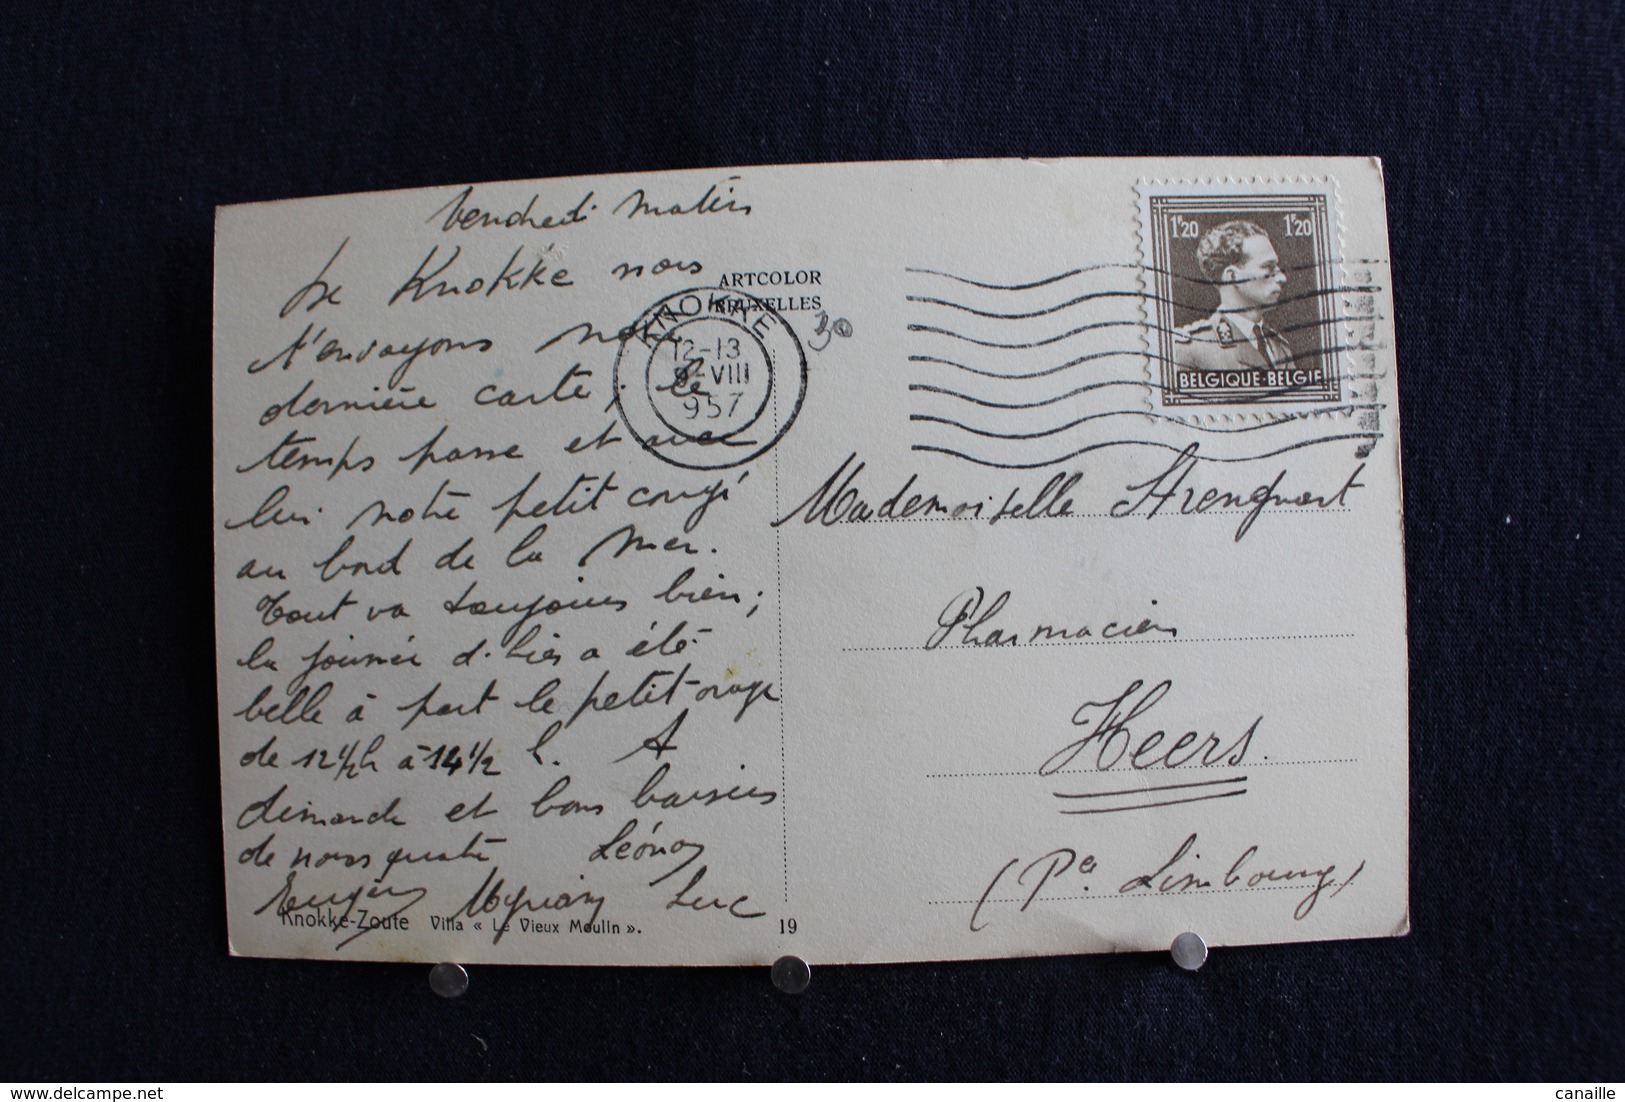 Vendredi Matin
De Knokke nous
t'envoyons notre
dernière carte; le
temps passe et avec
lui notre petit congé
au bord de la mer.
Tout va toujours bien;
la journée d'hier a été
belle à part le petit orage
de 12 1/2 h à 14 1/2 h. A
dimanche et bons baisers
de nous quatre Léonor
Eugène Myriam Luc
Knokke-Zoute Villa « Le Vieux Moulin ».
19
ARTCOLOR
BRUXELLES
KNOKKE
12-13
9-VIII
957
30
1F20 1F20
BELGIQUE·BELGIE
Mademoiselle Strengnart
Pharmacien
Heers.
(Pce Limbourg)
www.delcampe.net
canaille